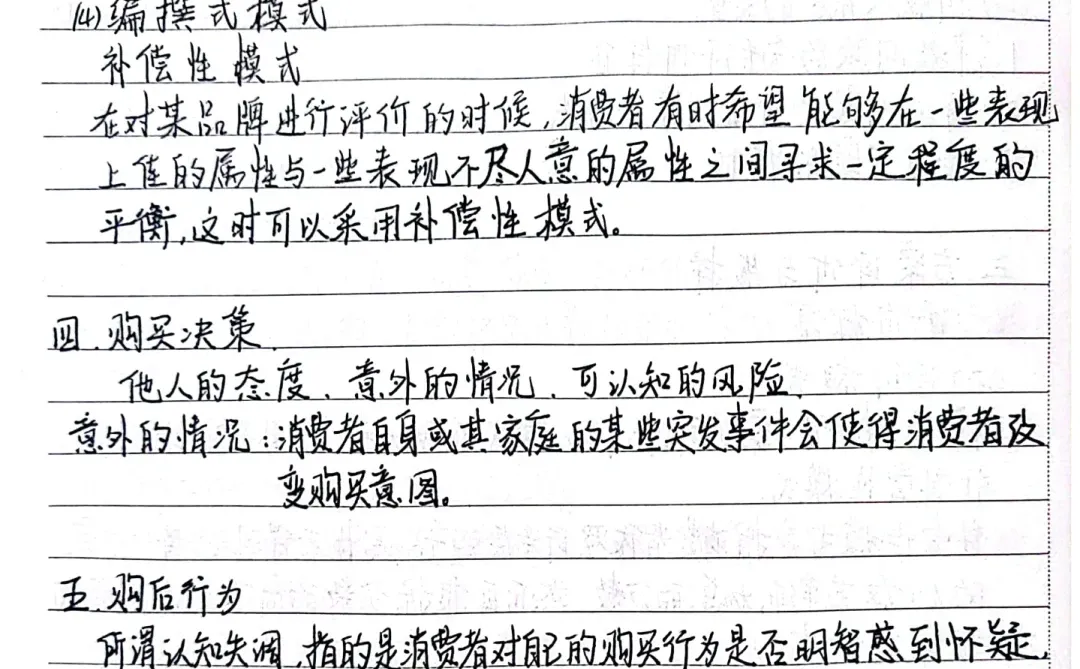 (4)编撰式模式
补偿性模式
在对某品牌进行评价的时候,消费者有时希望能够在一些表现
上佳的属性与一些表现不尽人意的属性之间寻求一定程度的
平衡,这时可以采用补偿性模式。
四.购买决策.
他人的态度、意外的情况、可认知的风险.
意外的情况:消费者自身或其家庭的某些突发事件会使得消费者改
变购买意图。
五.购后行为
所谓认知失调,指的是消费者对自己的购买行为是否明智感到怀疑.